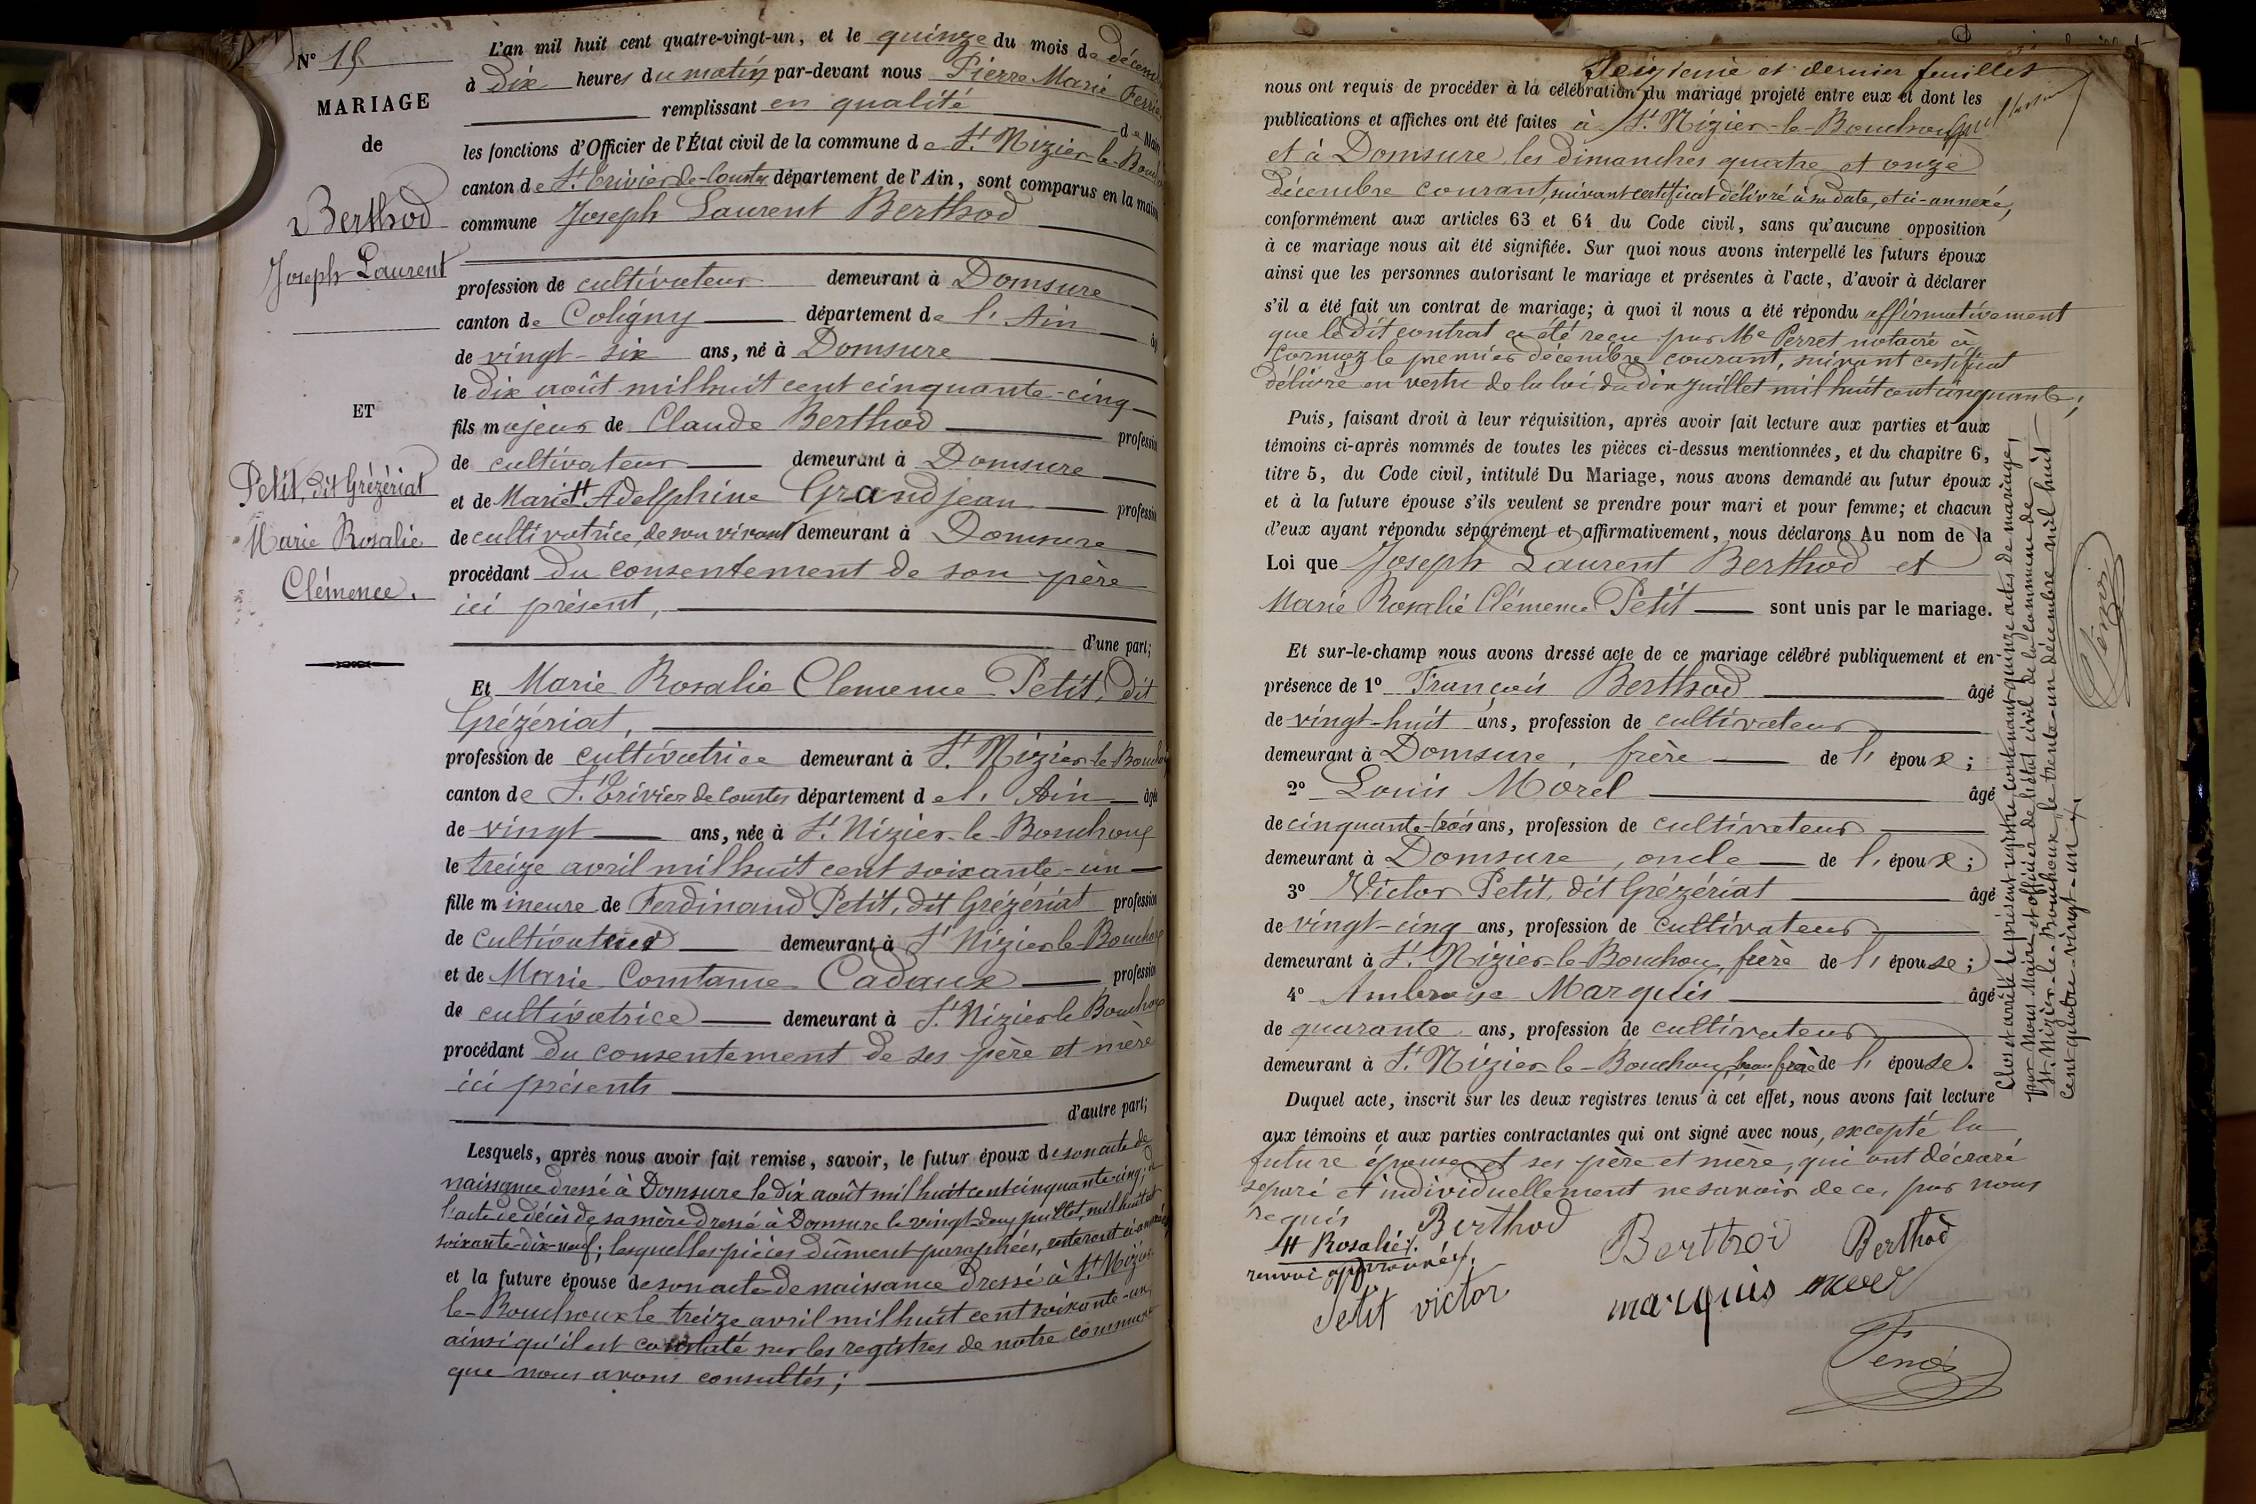 N° 15
MARIAGE
de
Berthod
Joseph Laurent
ET
Petit, dit Grézériat
Marie Rosalie
Clémence.
L'an mil huit cent quatre-vingt-un, et le quinze du mois de décem
à Dix heures du matin par-devant nous Pierre Marie
remplissant en qualité de Maire
les fonctions d'Officier de l'État civil de la commune de St Nizier-le-Bouch
canton de St Trivier-de-Courtes département de l'Ain, sont comparus en la mai
commune Joseph Laurent Berthod
profession de cultivateur demeurant à Domsure
canton de Coligny département de l'Ain âgé
de vingt-six ans, né à Domsure
le dix août mil huit cent cinquante-cinq
fils majeur de Claude Berthod profession
de cultivateur demeurant à Domsure
et de Marie # Adelphine Grandjean profession
de cultivatrice, de son vivant demeurant à Domsure
procédant du consentement de son père
ici présent,
d'une part;
Et Marie Rosalie Clemence Petit, dit
Grézériat,
profession de cultivatrice demeurant à St Nizier-le-Bouchoux
canton de St Trivier de Courtes département de l'Ain âgée
de vingt ans, née à St Nizier-le-Bouchoux
le treize avril mil huit cent soixante-un
fille mineure de Ferdinand Petit, dit Grézériat profession
de cultivateur demeurant à St Nizier le Bouchoux
et de Marie Constance Cadoux profession
de cultivatrice demeurant à St Nizier le Bouchoux
procédant du consentement de ses père et mère
ici présents
d'autre part;
Lesquels, après nous avoir fait remise, savoir, le futur époux de son acte de
naissance dressé à Domsure le dix août mil huit cent cinquante-cinq;
l'acte de décès de sa mère dressé à Domsure le vingt-deux juillet mil huit cent
soixante-dix-neuf; lesquelles pièces dûment paraphées, resteront ci-annexées
et la future épouse de son acte de naissance dressé à St Nizier
le-Bouchoux le treize avril mil huit cent soixante-un,
ainsi qu'il est constaté sur les registres de notre commune
que nous avons consultés;
Seizième et dernier feuillet
nous ont requis de procéder à la célébration du mariage projeté entre eux et dont les
publications et affiches ont été faites à St Nizier-le-Bouchoux
et à Domsure, les dimanches quatre et onze
décembre courant, suivant certificat délivré à sa date, et ci-annexé,
conformément aux articles 63 et 64 du Code civil, sans qu'aucune opposition
à ce mariage nous ait été signifiée. Sur quoi nous avons interpellé les futurs époux
ainsi que les personnes autorisant le mariage et présentes à l'acte, d'avoir à déclarer
s'il a été fait un contrat de mariage; à quoi il nous a été répondu affirmativement
que le dit contrat a été reçu par Me Perret notaire à
Cormoz le premier décembre courant, suivant certificat
délivré en vertu de la loi du dix juillet mil huit cent cinquante;
Puis, faisant droit à leur réquisition, après avoir fait lecture aux parties et aux
témoins ci-après nommés de toutes les pièces ci-dessus mentionnées, et du chapitre 6,
titre 5, du Code civil, intitulé Du Mariage, nous avons demandé au futur époux
et à la future épouse s'ils veulent se prendre pour mari et pour femme; et chacun
d'eux ayant répondu séparément et affirmativement, nous déclarons Au nom de la
Loi que Joseph Laurent Berthod et
Marie Rosalie Clémence Petit sont unis par le mariage.
Et sur-le-champ nous avons dressé acte de ce mariage célébré publiquement et en
présence de 1° François Berthod âgé
de vingt-huit ans, profession de cultivateur
demeurant à Domsure, frère de l'époux;
2° Louis Morel âgé
de cinquante-trois ans, profession de cultivateur
demeurant à Domsure, oncle de l'époux;
3° Victor Petit, dit Grézériat âgé
de vingt-cinq ans, profession de cultivateur
demeurant à St Nizier-le-Bouchoux, frère de l'épouse;
4° Ambroise Marquis âgé
de quarante ans, profession de cultivateur
demeurant à St Nizier-le-Bouchoux, beau frère de l'épouse.
Duquel acte, inscrit sur les deux registres tenus à cet effet, nous avons fait lecture
aux témoins et aux parties contractantes qui ont signé avec nous, excepté la
future épouse et ses père et mère, qui ont décraré
séparé et individuellement ne savoir de ce, par nous
requis
# Rosalie.
renvoi approuvé
Berthod
Berthod
Berthod
Petit victor
marquis
Clos et arrêté le présent registre contenant quinze actes de mariage,
par Nous Maire et officier de l'état civil de la commune de
St Nizier-le-Bouchoux le trente-un décembre mil huit
cent quatre-vingt-un